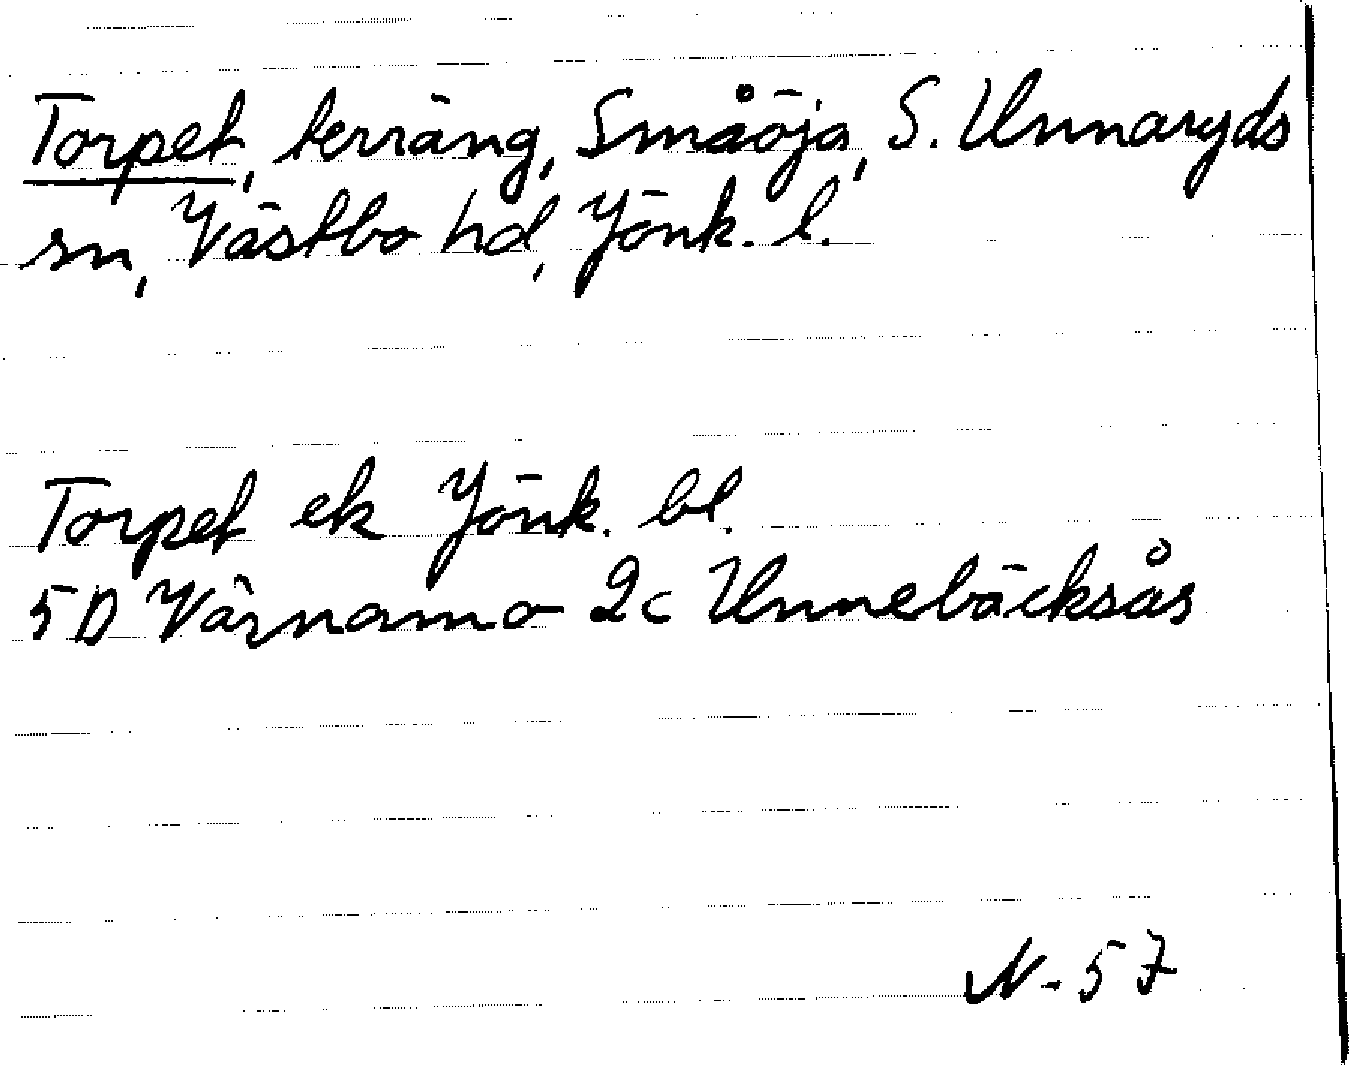 Torpet, terräng, Småöja, S. Unnaryds
sn, Västbo hd, Jönk. l.
Torpet ek Jönk. bl.
5D Värnamo 2c Unnebäcksås
N-57